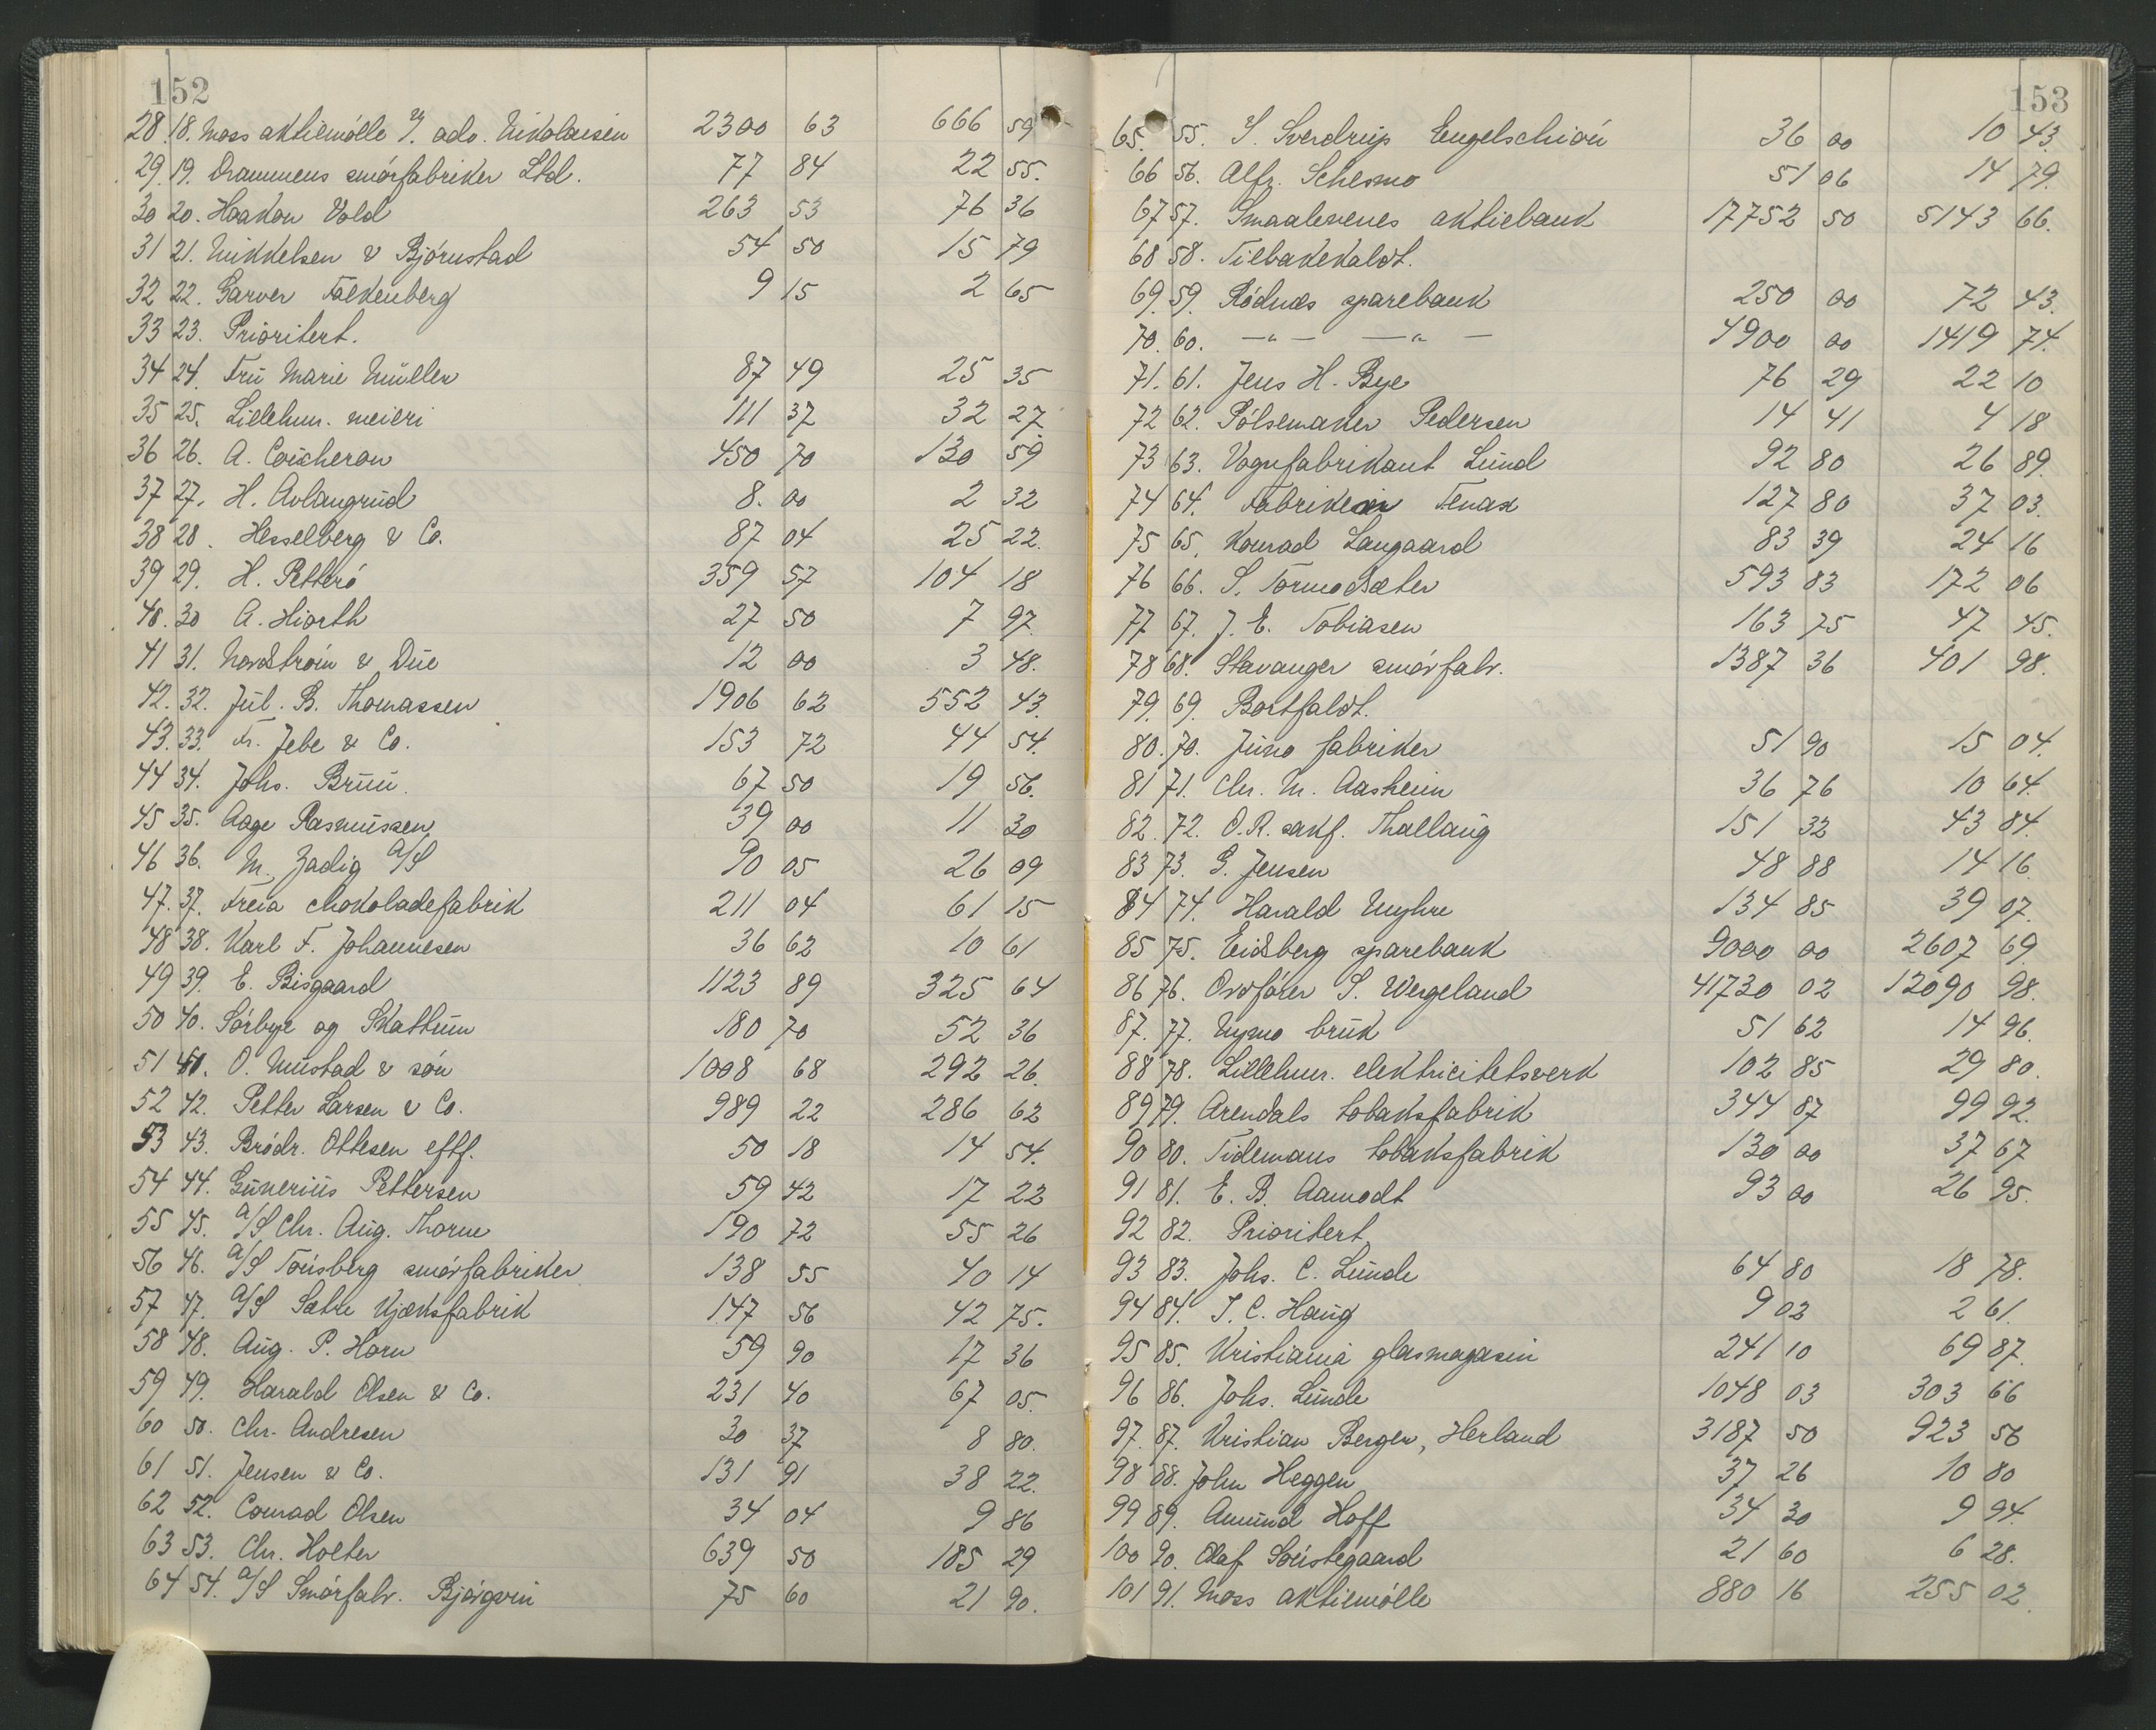 152
28 18. Moss aktiemölle v. adv. Nikolaisen 2300 63 666 59
29. 19. Drammens smörfabriker Ltd. 77 84 22 55.
30 20. Haakon Vold 263 53 76 36
31 21. Mikkelsen & Björnstad 54 50 15 79
32 22. Garver Falkenberg 9 15 2 65
33 23. Prioritert.
34 24. Fru Marie Müller 87 49 25 35
35 25. Lillehm. meieri 111 37 32 27
36 26. A. Coucheron 450 70 130 59
37 27. H. Avlangrud 8. 00 2 32
38 28. Hesselberg & Co. 87 04 25 22.
39 29. H. Petterö 359 57 104 18
40. 30 A. Hiorth 27 50 7 97.
41 31. Nordström & Due 12 00 3 48.
42. 32. Jul. B. Thomassen 1906 62 552 43.
43. 33. Fr. Jebe & Co. 153 72 44 54.
44 34. Johs. Bruu 67 50 19 56.
45 35. Aage Rasmussen 39 00 11 30
46 36. M. Zadig A/S 90 05 26 09
47. 37. Freia chokoladefabrik 211 04 61 15
48 38. Karl F. Johannesen 36 62 10 61
49 39. E. Bisgaard 1123 89 325 64
50 40. Sörbye og Skattum 180 70 52 36
51 41. O. Mustad & sön 1008 68 292 26.
52 42. Petter Larsen & Co. 989 22 286 62
53 43. Brödr. Ottesen eftf. 50 18 14 54.
54 44. Gunerius Pettersen 59 42 17 22
55 45. A/S Chr. Aug. Thorne 190 72 55 26
56 46. A/S Tönsberg smörfabriker 138 55 40 14
57 47. A/S Sætre Kjæksfabrik 147 56 42 75.
58 48. Aug. P. Horn 59 90 17 36
59 49. Harald Olsen & Co. 231 40 67 05.
60 50. Chr. Andresen 30 37 8 80.
61 51. Jensen & Co. 131 91 38 22.
62 52. Conrad Olsen 34 04 9 86
63 53. Chr. Holter 639 50 185 29
64 54. A/S Smörfabr. Björgvin 75 60 21 90.
153
65. 55. S. Sverdrup Engelschiön 36 00 10 43.
66 56. Alfr. Schesmo 51 06 14 79.
67 57. Smaalenenes aktiebank 17752 50 5143 66.
68 58. Tilbakekaldt.
69. 59. Rödnæs sparebank 250 00 72 43.
70. 60. —"— —"— 4900 00 1419 74.
71. 61. Jens H. Bye 76 29 22 10
72 62. Pölsemaker Pedersen 14 41 4 18
73 63. Vognfabrikant Lund 92 80 26 89.
74 64. Fabrikken Tenax 127 80 37 03.
75 65. Konrad Langaard 83 39 24 16
76 66. S. Tormodsæter 593 83 172 06
77 67. J. E. Tobiasen 163 75 47 45.
78 68. Stavanger smörfabr. 1387 36 401 98.
79. 69. Bortfaldt.
80. 70. Juno fabriker 51 90 15 04.
81 71. Chr. M. Aasheim 36 76 10 64.
82. 72. O.R. sakf. Thallaug 151 32 43 84.
83 73. G. Jensen 48 88 14 16.
84 74. Harald Myhre 134 85 39 07.
85 75. Eidsberg sparebank 9000 00 2607 69.
86 76. Ordförer S. Wergeland 41730 02 12090 98.
87. 77. Nymo bruk 51 62 14 96.
88 78. Lillehm. elektricitetsverk 102 85 29 80.
89 79. Arendals tobaksfabrik 344 87 99 92.
90 80. Tidemans tobaksfabrik 130 00 37 67
91 81. E. B. Aamodt 93 00 26 95.
92 82. Prioritert
93 83. Johs. C. Lunde 64 80 18 78.
94 84. T. C. Haug 9 02 2 61.
95 85. Kristiania glasmagasin 241 10 69 87.
96 86. Johs. Lunde 1048 03 303 66
97. 87. Kristian Berger, Herland 3187 50 923 56
98 88. John Heggen 37 26 10 80
99 89. Amund Hoff 34 30 9 94.
100 90. Olaf Soestegaard 21 60 6 28.
101 91. Moss aktiemölle 880 16 255 02.